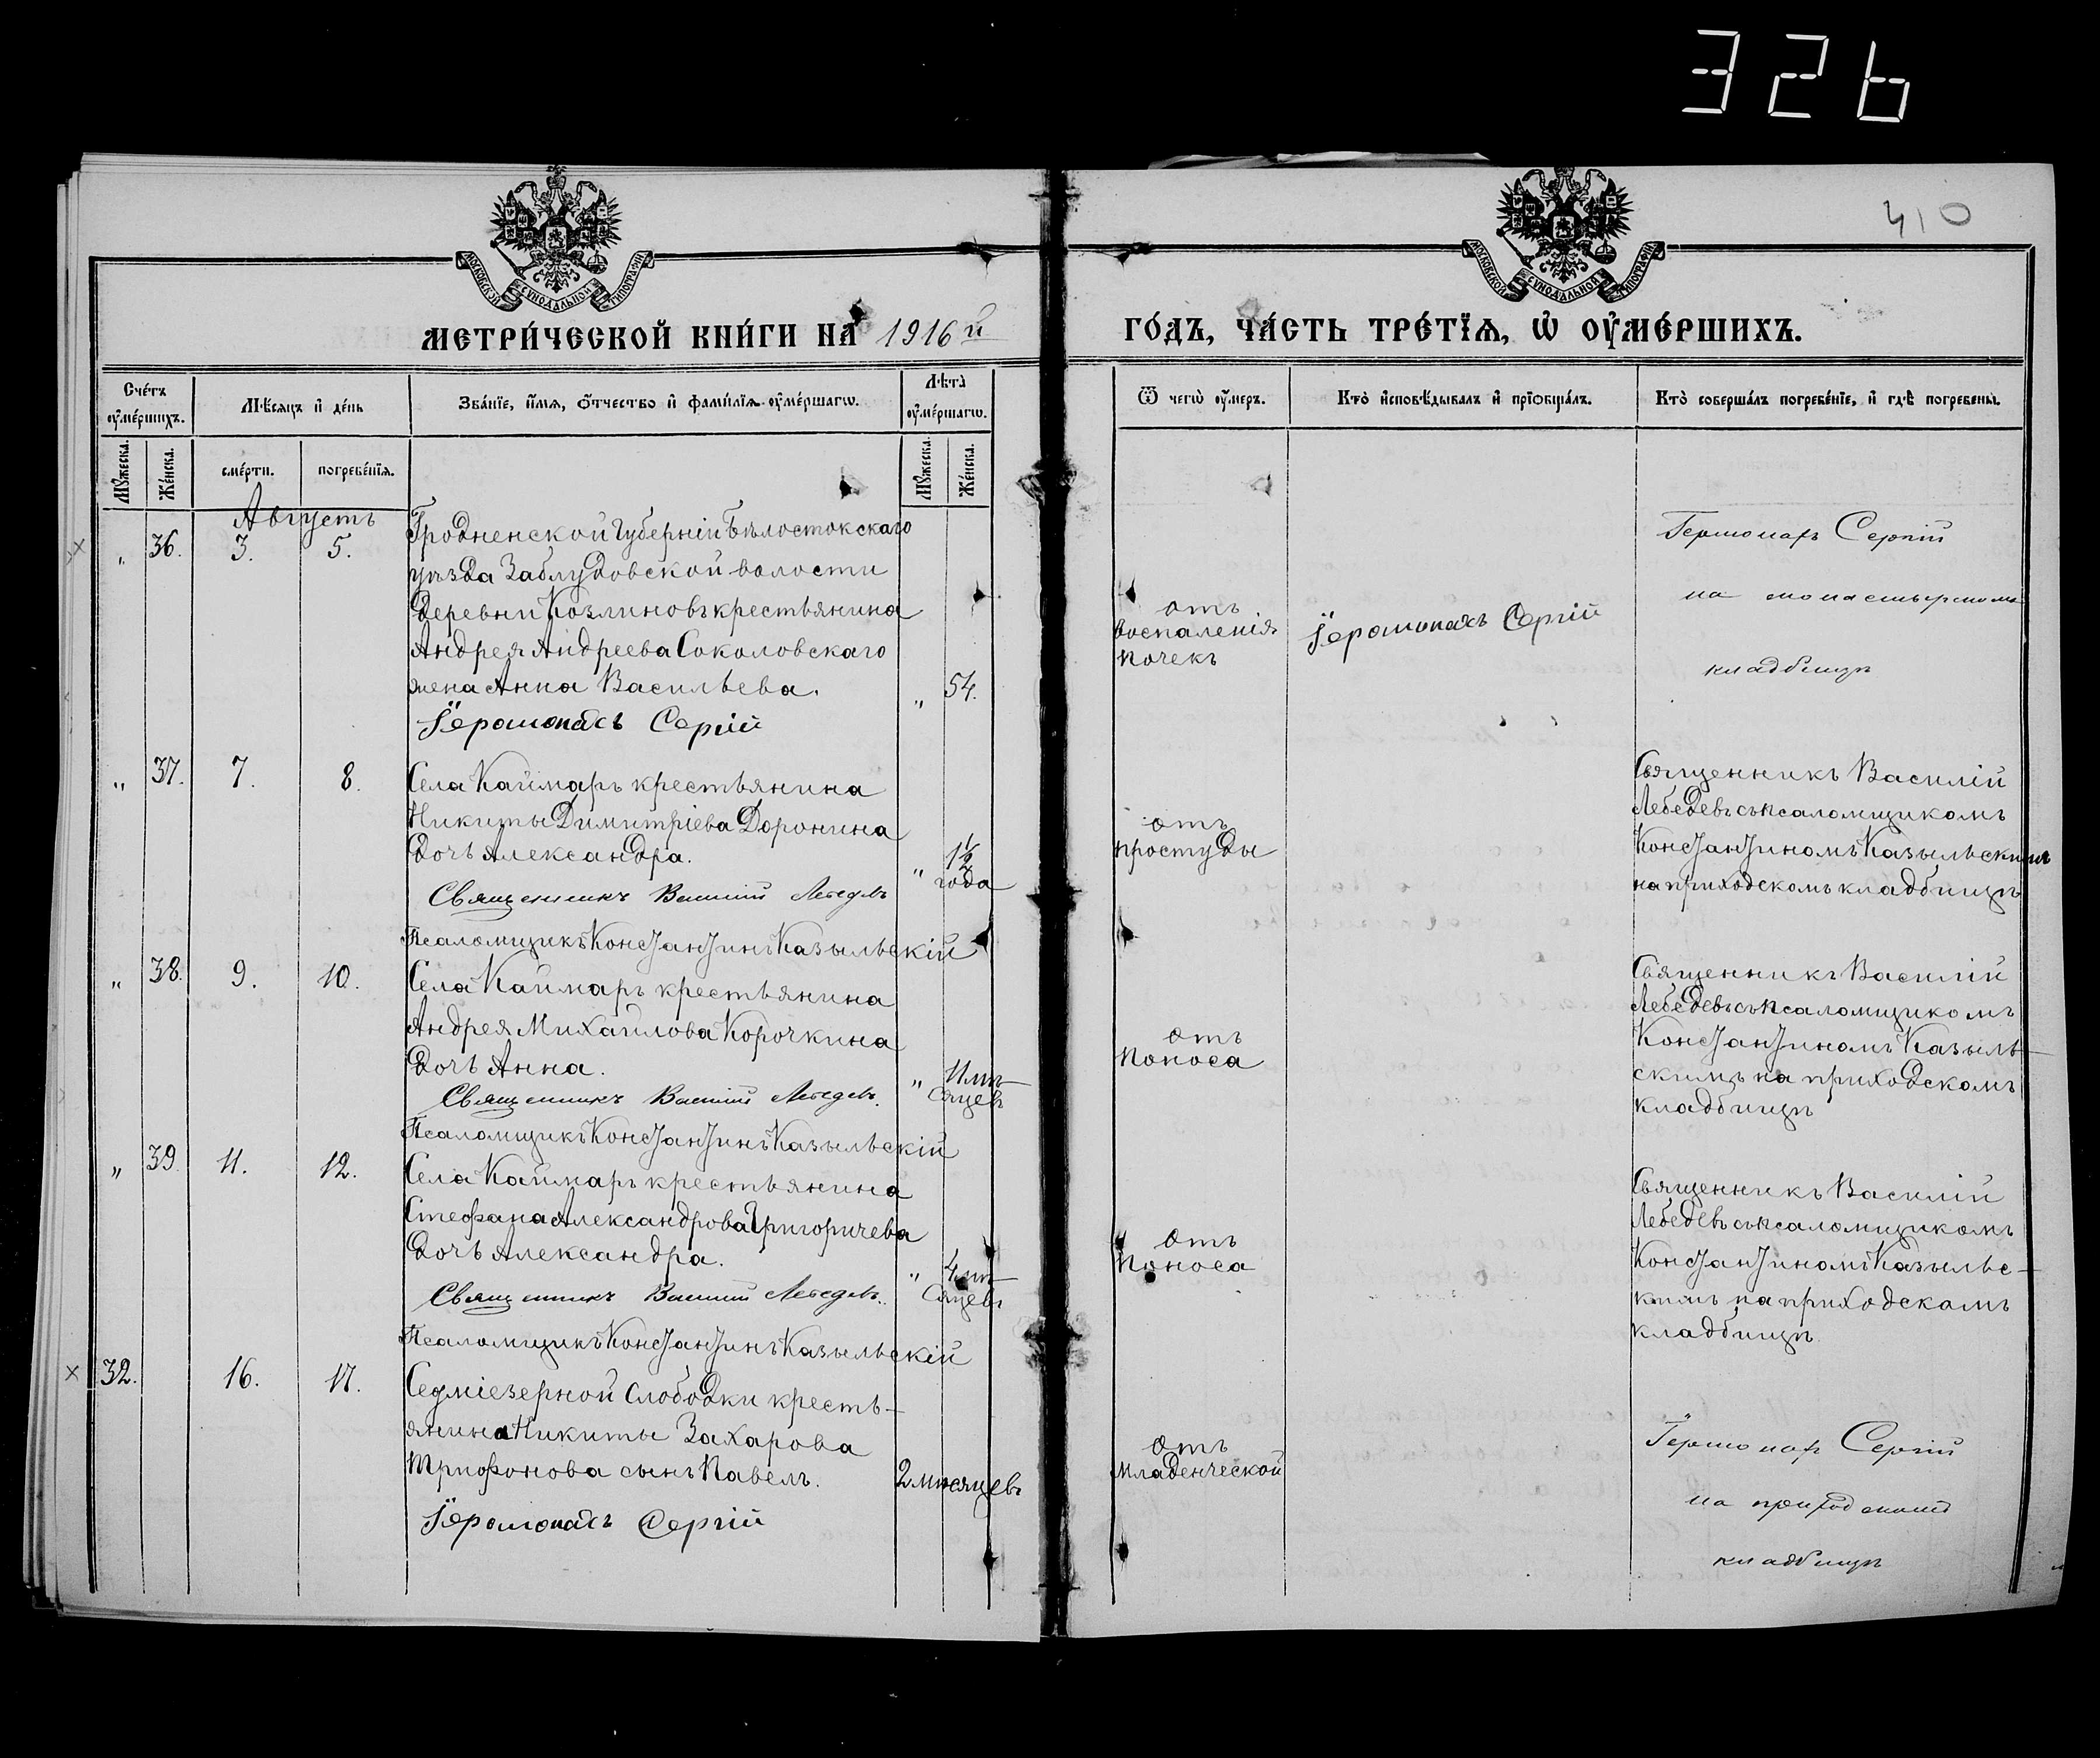 326
410
МОСКОВСКОЙ СѴНОДАЛЬНОЙ ТИПОГРАФІИ
МОСКОВСКОЙ СѴНОДАЛЬНОЙ ТИПОГРАФІИ
МЕТРИ́ЧЕСКОЙ КНИ́ГИ НА 1916й
ГО́ДЪ, ЧА́СТЬ ТРЕ́ТЇѦ, Ѡ҆ ОУ҆МЕ́РШИХЪ.
Сче́тъ оу҆ме́ршихъ.
Мѣ́сѧцъ и҆ де́нь
Зва́нїе, и҆́мѧ, ѻ҆́тчество и҆ фами́лїѧ оу҆ме́ршагѡ.
Лѣ̑та оу҆ме́ршагѡ.
Ѿ чегѡ̀ оу҆́меръ.
Кто̀ и҆сповѣ́дывалъ и҆ прїѻбща́лъ.
Кто̀ соверша́лъ погребе́нїе, и҆ гдѣ̀ погребены̀.
Мꙋ́жеска.
Же́нска.
сме́рти.
погребе́нїѧ.
Мꙋ́жеска.
Же́нска.
Августъ
" 36. 3. 5.
Гродненской губерніи Бѣлостокскаго
уѣзда Заблудовской волости
деревни Козлиновъ крестьянина
Андрея Андреева Соколовскаго
жена Анна Васильева.
" 54.
Іеромонахъ Сергій
отъ
воспаленія
почекъ
Іеромонахъ Сергій
Іеромонахъ Сергій
на монастырскомъ
кладбищѣ
" 37. 7. 8.
Села Каймаръ крестьянина
Никиты Димитріева Доронина
дочь Александра.
" 1½
года
Священникъ Василій Лебедевъ
Псаломщикъ Константинъ Казыльскій
отъ
простуды
Священникъ Василій
Лебедевъ съ псаломщикомъ
Константиномъ Казыльскимъ
на приходскомъ кладбищѣ
" 38. 9. 10.
Села Каймаръ крестьянина
Андрея Михайлова Корочкина
дочь Анна.
" 11 мѣ-
сяцевъ
Священникъ Василій Лебедевъ.
Псаломщикъ Константинъ Казыльскій
отъ
поноса
Священникъ Василій
Лебедевъ съ псаломщикомъ
Константиномъ Казыль-
скимъ на приходскомъ
кладбищѣ
" 39. 11. 12.
Села Каймаръ крестьянина
Стефана Александрова Григоричева
дочь Александра.
" 4 мѣ-
сяцевъ
Священникъ Василій Лебедевъ.
Псаломщикъ Константинъ Казыльскій
отъ
поноса
Священникъ Василій
Лебедевъ съ псаломщикомъ
Константиномъ Казыльс-
кимъ на приходскомъ
кладбищѣ
32. 16. 17.
Седміезерной слободки кресть-
янина Никиты Захарова
Трифонова сынъ Павелъ.
2 мѣсяцевъ
Іеромонахъ Сергій
отъ
младенческой
Іеромонахъ Сергій
на приходскомъ
кладбищѣ